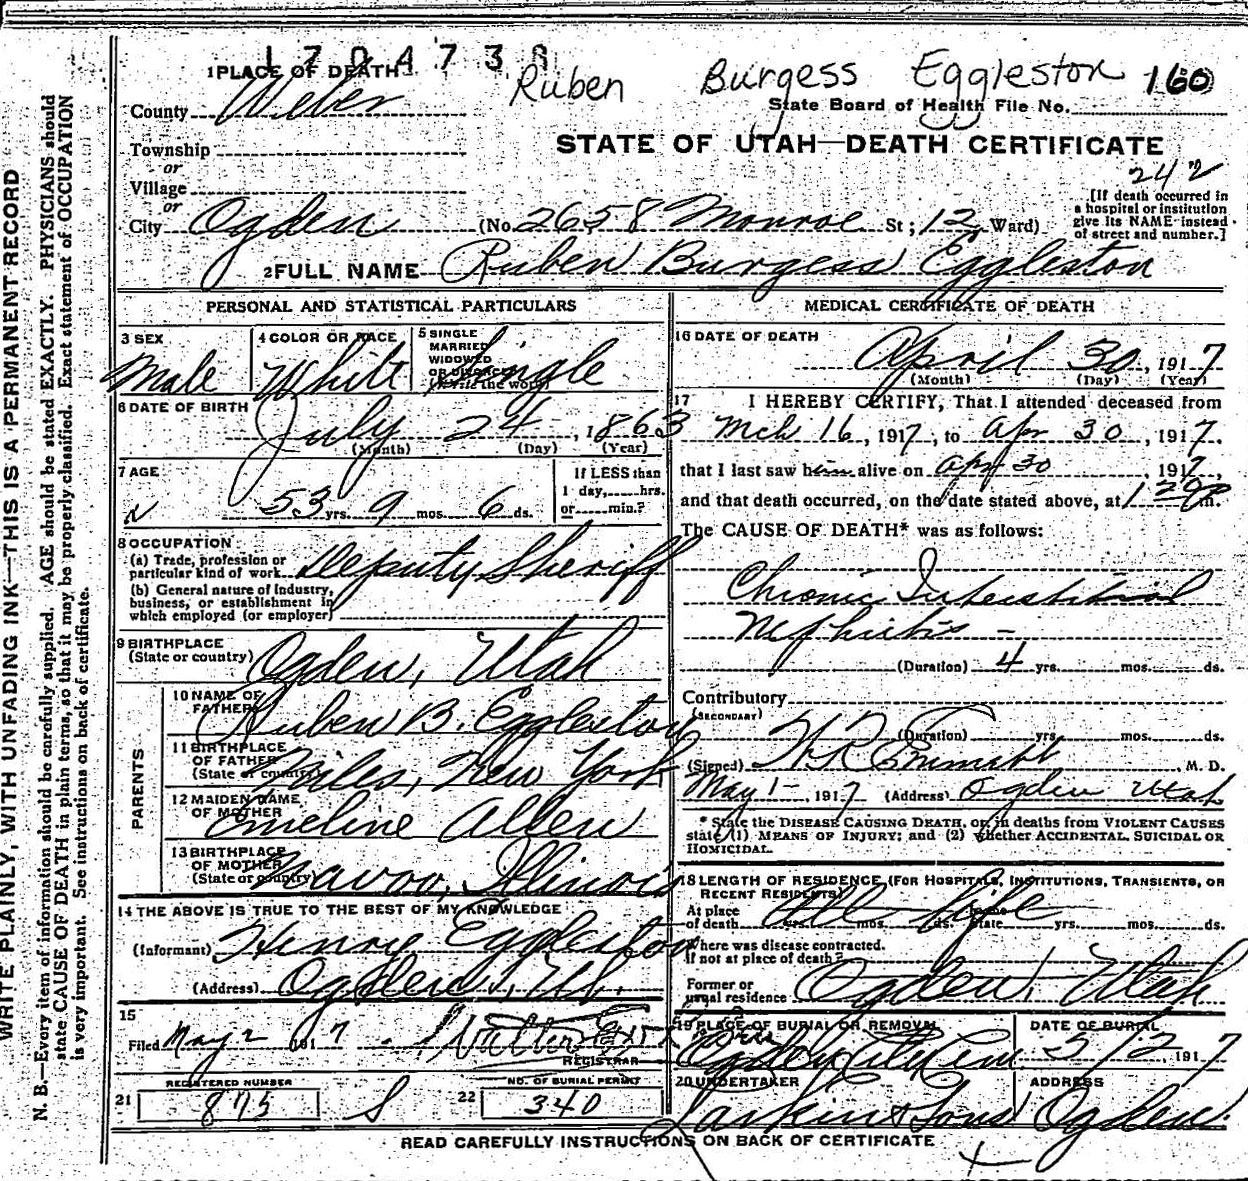 1704738
Ruben Burgess Eggleston 160
1 PLACE OF DEATH
County Weber
State Board of Health File No.
Township
or
STATE OF UTAH—DEATH CERTIFICATE
242
Village
or
[If death occurred in
a hospital or institution
give its NAME instead
of street and number.]
City Ogden (No. 2658 Monroe St; 12 Ward)
2 FULL NAME Ruben Burgess Eggleston
PERSONAL AND STATISTICAL PARTICULARS
3 SEX
Male
4 COLOR OR RACE
White
5 SINGLE
MARRIED
WIDOWED
OR DIVORCED
(Write the word)
Single
6 DATE OF BIRTH
July 24, 1863
(Month) (Day) (Year)
7 AGE
53 yrs. 9 mos. 6 ds.
If LESS than
1 day,......hrs.
or......min.?
8 OCCUPATION
(a) Trade, profession or
particular kind of work Deputy Sheriff
(b) General nature of Industry,
business, or establishment in
which employed (or employer)
9 BIRTHPLACE
(State or country) Ogden, Utah
PARENTS
10 NAME OF
FATHER Ruben B. Eggleston
11 BIRTHPLACE
OF FATHER
(State or country) Niles, New York
12 MAIDEN NAME
OF MOTHER Emeline Allen
13 BIRTHPLACE
OF MOTHER
(State or country) Navoo, Illinois
14 THE ABOVE IS TRUE TO THE BEST OF MY KNOWLEDGE
(Informant) Henry Eggleston
(Address) Ogden, Ut.
15
Filed May 2 1917
REGISTRAR
21 REGISTERED NUMBER
875 S
22 NO. OF BURIAL PERMIT
340
MEDICAL CERTIFICATE OF DEATH
16 DATE OF DEATH
April 30, 1917
(Month) (Day) (Year)
17 I HEREBY CERTIFY, That I attended deceased from
Mch 16, 1917, to Apr 30, 1917.
that I last saw him alive on Apr 30, 1917,
and that death occurred, on the date stated above, at 1 20 P m.
The CAUSE OF DEATH* was as follows:
Chronic Interstitial
Nephritis -
(Duration) 4 yrs. mos. ds.
Contributory
(SECONDARY)
(Duration) yrs. mos. ds.
(Signed) Emmett M. D.
May 1-, 1917 (Address) Ogden Utah
* State the DISEASE CAUSING DEATH, or, in deaths from VIOLENT CAUSES
state (1) MEANS OF INJURY; and (2) whether ACCIDENTAL, SUICIDAL OR
HOMICIDAL.
18 LENGTH OF RESIDENCE (FOR HOSPITALS, INSTITUTIONS, TRANSIENTS, OR
RECENT RESIDENTS)
At place
of death yrs. mos. ds. State yrs. mos. ds.
All life
Where was disease contracted.
If not at place of death?
Former or
usual residence Ogden, Utah
19 PLACE OF BURIAL OR REMOVAL
Ogden City Cem
DATE OF BURIAL
5/2, 1917
20 UNDERTAKER
Larkin & Sons
ADDRESS
Ogden
READ CAREFULLY INSTRUCTIONS ON BACK OF CERTIFICATE
WRITE PLAINLY, WITH UNFADING INK—THIS IS A PERMANENT RECORD
N. B.—Every item of information should be carefully supplied. AGE should be stated EXACTLY. PHYSICIANS should
state CAUSE OF DEATH in plain terms, so that it may be properly classified. Exact statement of OCCUPATION
is very important. See instructions on back of certificate.